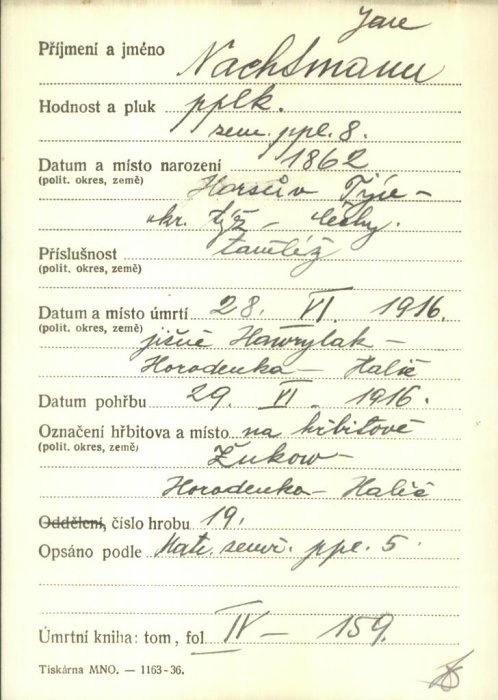 Příjmení a jméno Nachtmann
Hodnost a pluk pplk.
zem. ppl. 8.
Datum a místo narození 1862
(polit. okres, země) Horšův Týn –
okr. týž – Čechy.
Příslušnost tamtéž
(polit. okres, země)
Datum a místo úmrtí 28. VI. 1916.
(polit. okres, země) jižně Hawrylak –
Horodenka – Halič
Datum pohřbu 29. VI. 1916.
Označení hřbitova a místo na hřbitově
(polit. okres, země) Žukow –
Horodenka – Halič
Oddělení, číslo hrobu 19.
Opsáno podle Matr. ppl. 5
Úmrtní kniha: tom, fol IV – 159.
Tiskárna MNO. — 1163-36.